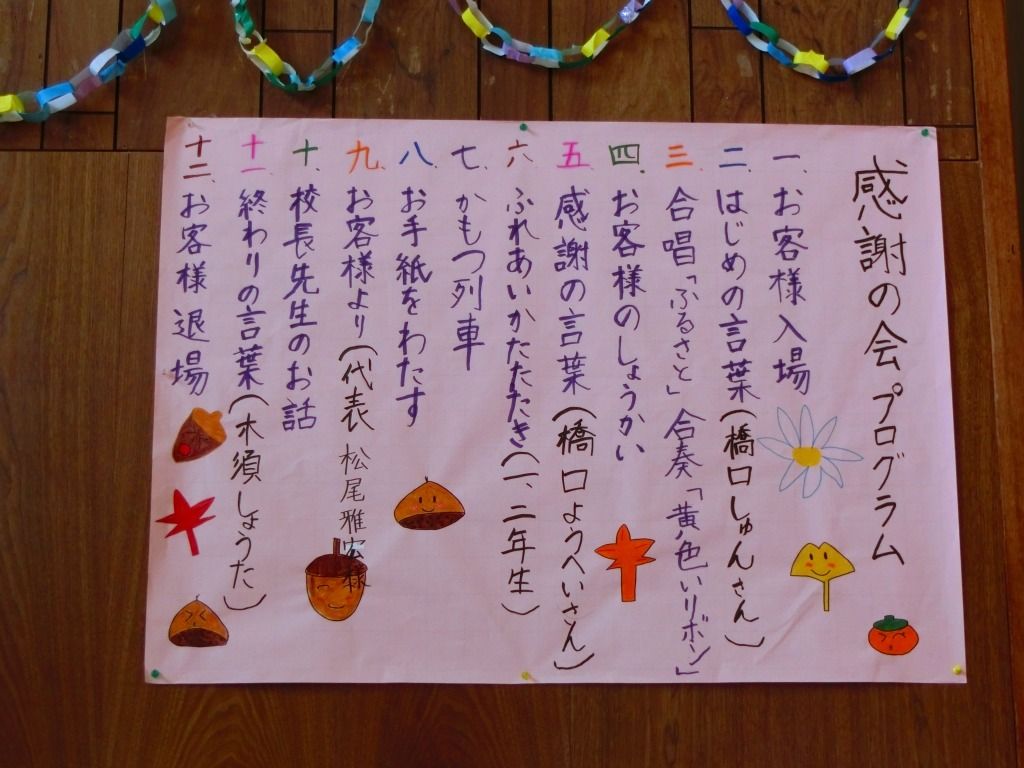 感謝の会プログラム
一、お客様入場
二、はじめの言葉(橋口しゅんさん)
三、合唱「ふるさと」合奏「黄色いリボン」
四、お客様のしょうかい
五、感謝の言葉(橋口ようへいさん)
六、ふれあいかたたたき(一、二年生)
七、かもつ列車
八、お手紙をわたす
九、お客様より(代表 松尾雅宏様
十、校長先生のお話
十一、終わりの言葉(木須しょうた)
十二、お客様退場